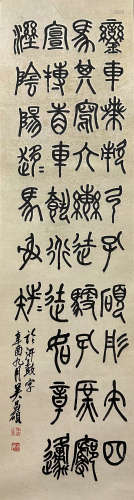 鑾車𠦪敕弓孔碩彤矢四
馬其寫六轡徒馭孔庶廓
宣搏眚車載行徒如章邍
溼陰陽趍趍馬射
字
辛酉九月吳昌碩